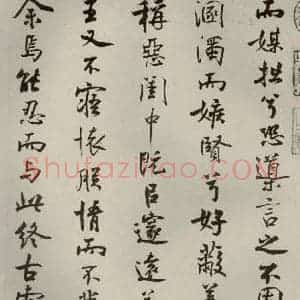 而媒拙兮恐導言之不固
溷濁而嫉賢兮好蔽美
稱惡閨中既㠯邃遠兮
王又不寤懷朕情而不發
余焉能忍而与此終古
Shufaziliao.com